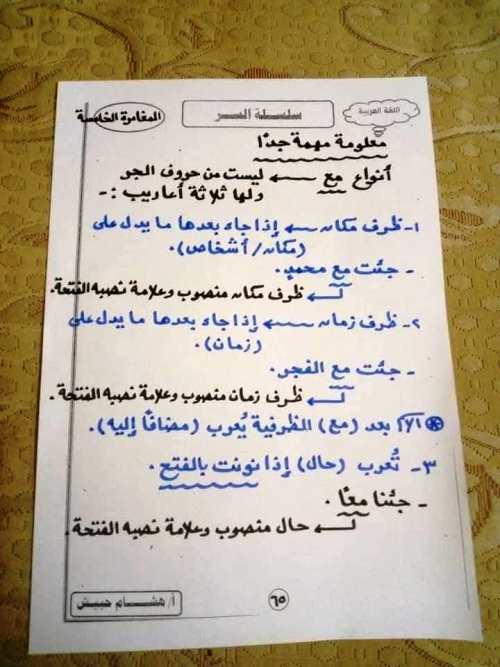 اللغة العربية
سلسلة السر
المغامرة الخامسة
معلومة مهمة جدًا
أنواع مع ← ليست من حروف الجر
ولها ثلاثة أعاريب :-
١- ظرف مكان ← إذا جاء بعدها ما يدل على
(مكان/ أشخاص).
- جئت مع محمدٍ.
ظرف مكان منصوب وعلامة نصبه الفتحة.
٢- ظرف زمان ← إذا جاء بعدها ما يدل على
(زمان).
- جئت مع الفجر.
ظرف زمان منصوب وعلامة نصبه الفتحة.
بعد (مع) الظرفية يُعرب (مضافًا إليه).
٣- تُعرب (حال) إذا نونت بالفتح.
- جئنا معًا.
حال منصوب وعلامة نصبه الفتحة.
٦٥
أ/ هشام حبيش